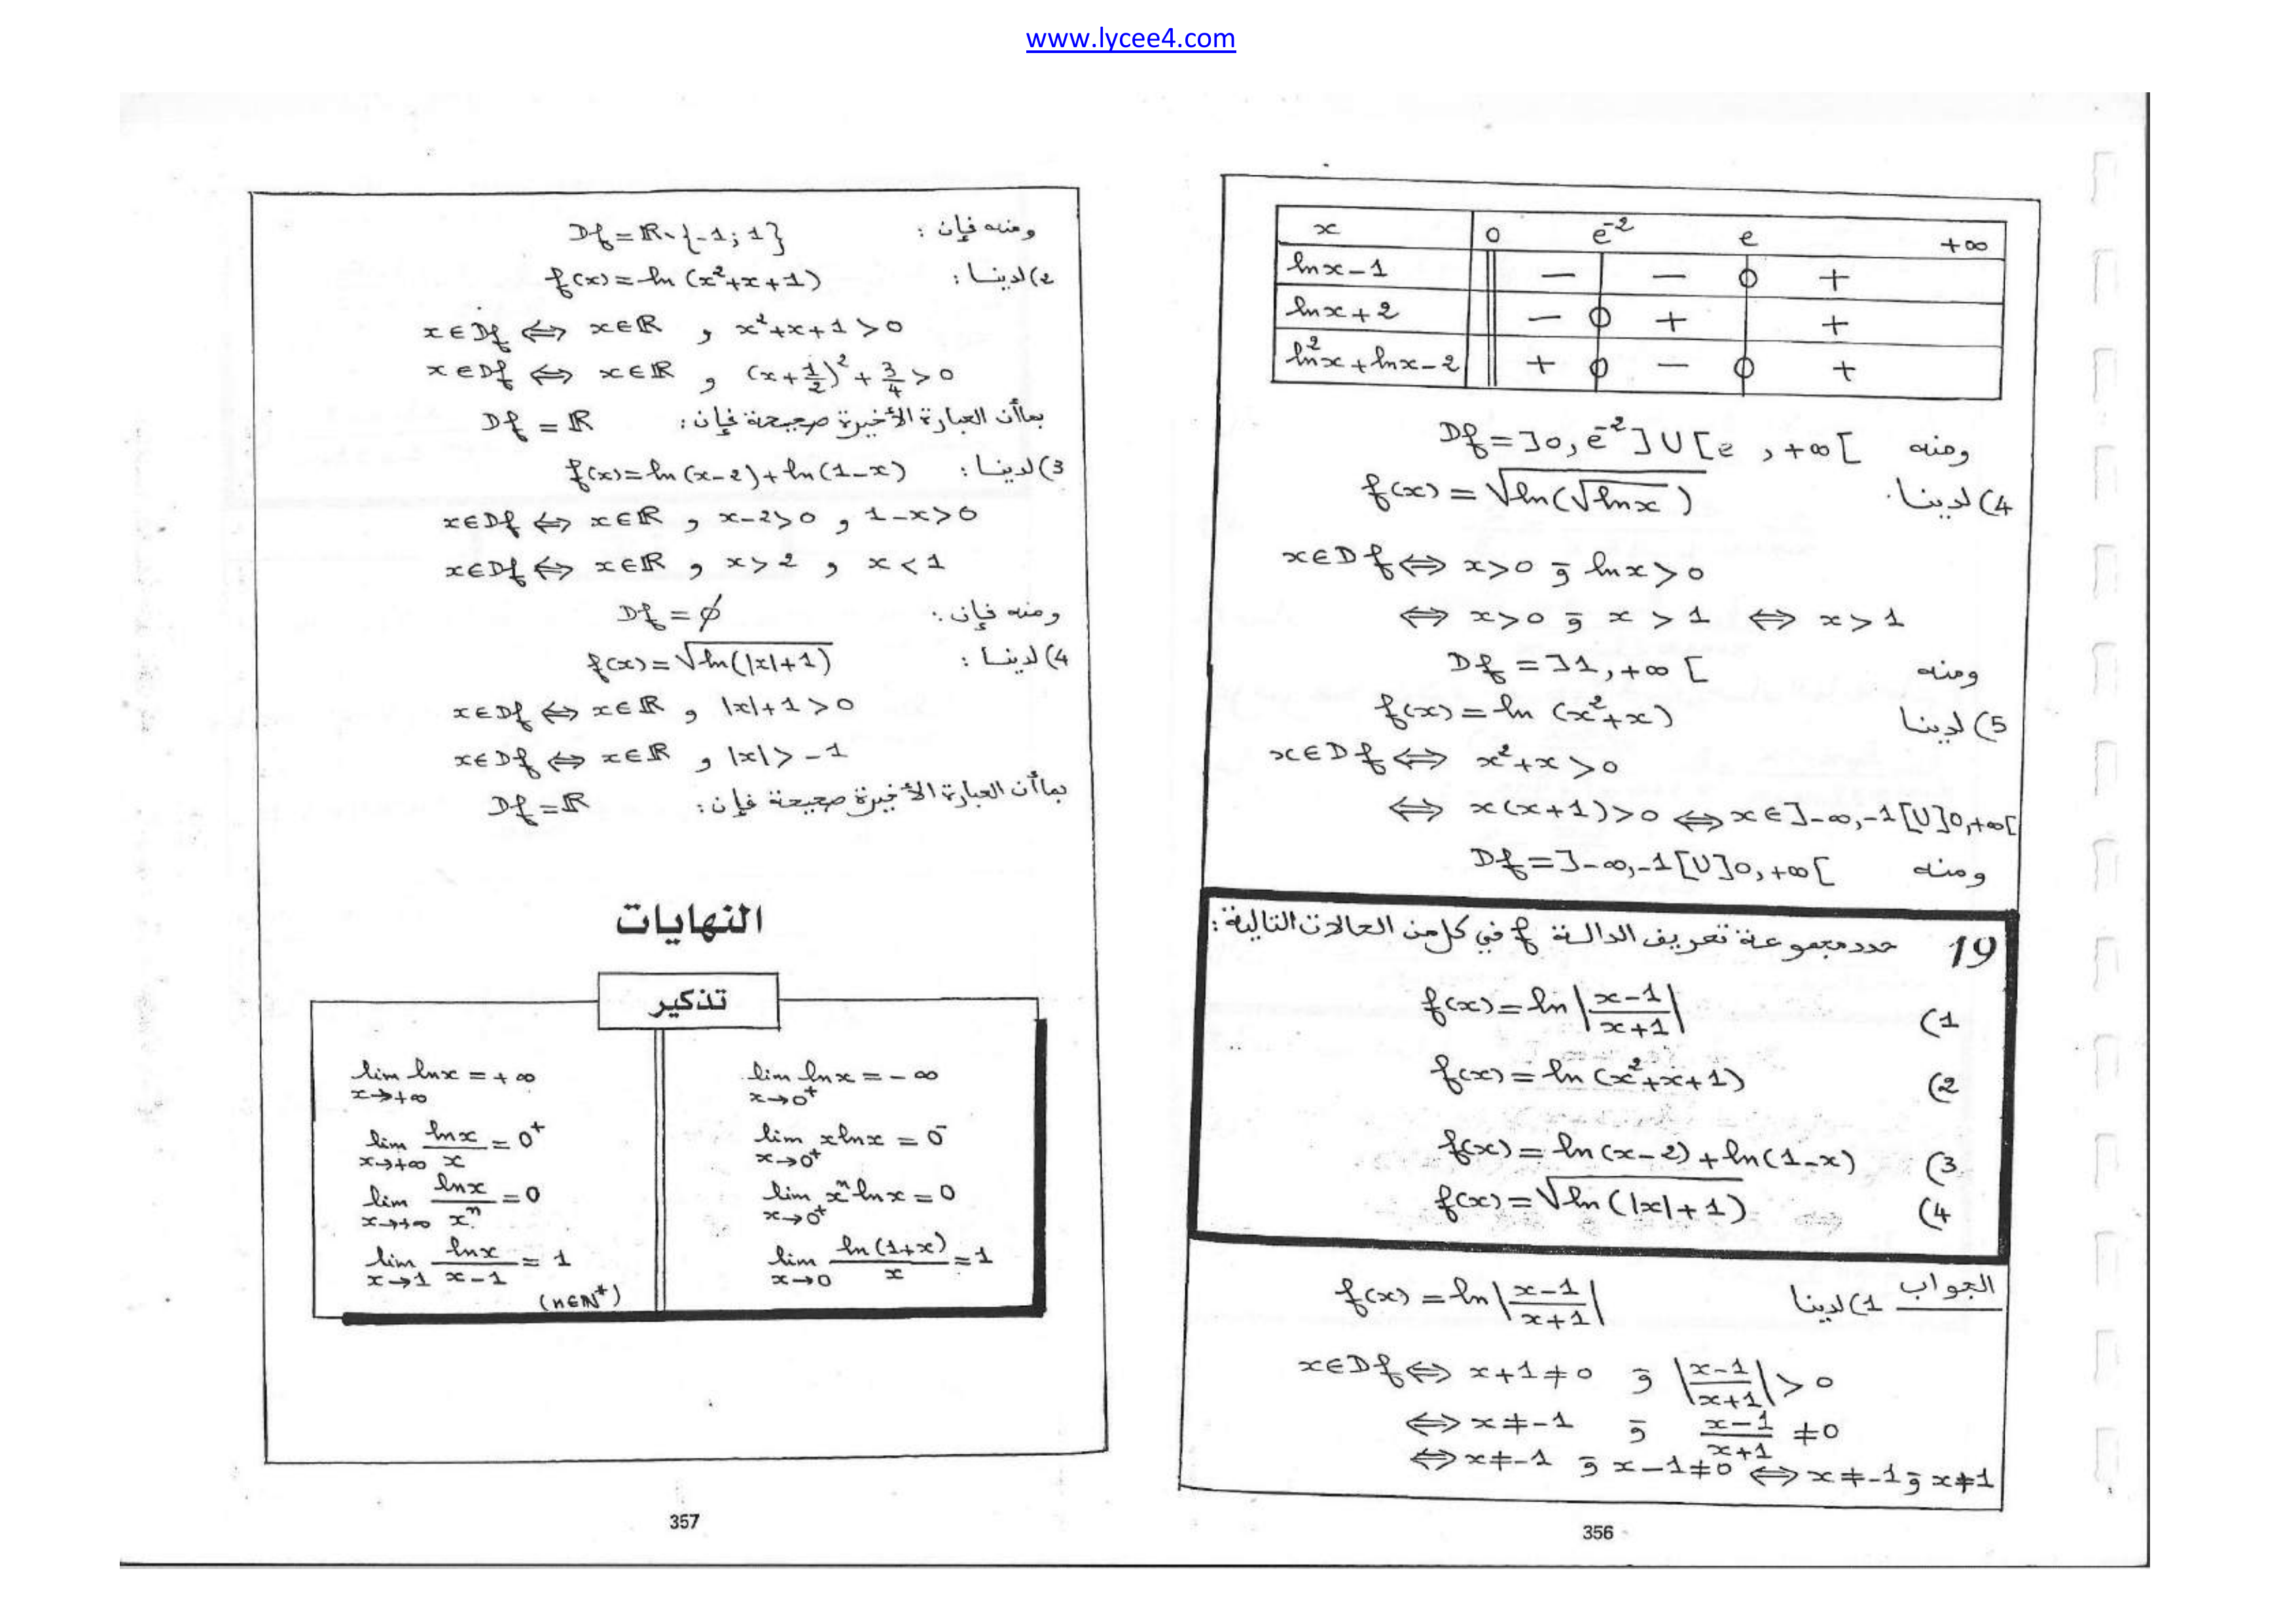 www.lycee4.com
x 0 e⁻² e +∞
lnx-1 - - 0 +
lnx+2 - 0 + +
ln²x+lnx-2 + 0 - 0 +
ومنه Df=]0,e⁻²]U[e,+∞[
4) لدينا. f(x)=√(ln(√(lnx)))
x∈Df ⟺ x>0 و lnx>0
⟺ x>0 و x>1 ⟺ x>1
ومنه Df=]1,+∞[
5) لدينا f(x)=ln(x²+x)
x∈Df ⟺ x²+x>0
⟺ x(x+1)>0 ⟺ x∈]-∞,-1[U]0,+∞[
ومنه Df=]-∞,-1[U]0,+∞[
19 حدد مجموعة تعريف الدالة f في كل من الحالات التالية:
1) f(x)=ln|(x-1)/(x+1)|
2) f(x)=ln(x²+x+1)
3) f(x)=ln(x-2)+ln(1-x)
4) f(x)=√(ln(|x|+1))
الجواب 1) لدينا f(x)=ln|(x-1)/(x+1)|
x∈Df ⟺ x+1≠0 و |(x-1)/(x+1)|>0
⟺ x≠-1 و (x-1)/(x+1)≠0
⟺ x≠-1 و x-1≠0 ⟺ x≠-1 و x≠1
356
ومنه فإن: Df=ℝ\{-1;1}
2) لدينا: f(x)=ln(x²+x+1)
x∈Df ⟺ x∈ℝ و x²+x+1>0
x∈Df ⟺ x∈ℝ و (x+1/2)²+3/4>0
بما أن العبارة الأخيرة صحيحة فإن: Df=ℝ
3) لدينا: f(x)=ln(x-2)+ln(1-x)
x∈Df ⟺ x∈ℝ و x-2>0 و 1-x>0
x∈Df ⟺ x∈ℝ و x>2 و x<1
ومنه فإن: Df=∅
4) لدينا: f(x)=√(ln(|x|+1))
x∈Df ⟺ x∈ℝ و |x|+1>0
x∈Df ⟺ x∈ℝ و |x|>-1
بما أن العبارة الأخيرة صحيحة فإن: Df=ℝ
النهايات
تذكير
lim x→0⁺ lnx=-∞
lim x→0⁺ xlnx=0⁻
lim x→0⁺ xⁿlnx=0
lim x→0 ln(1+x)/x=1
lim x→+∞ lnx=+∞
lim x→+∞ lnx/x=0⁺
lim x→+∞ lnx/xⁿ=0
lim x→1 lnx/(x-1)=1
(n∈ℕ*)
357